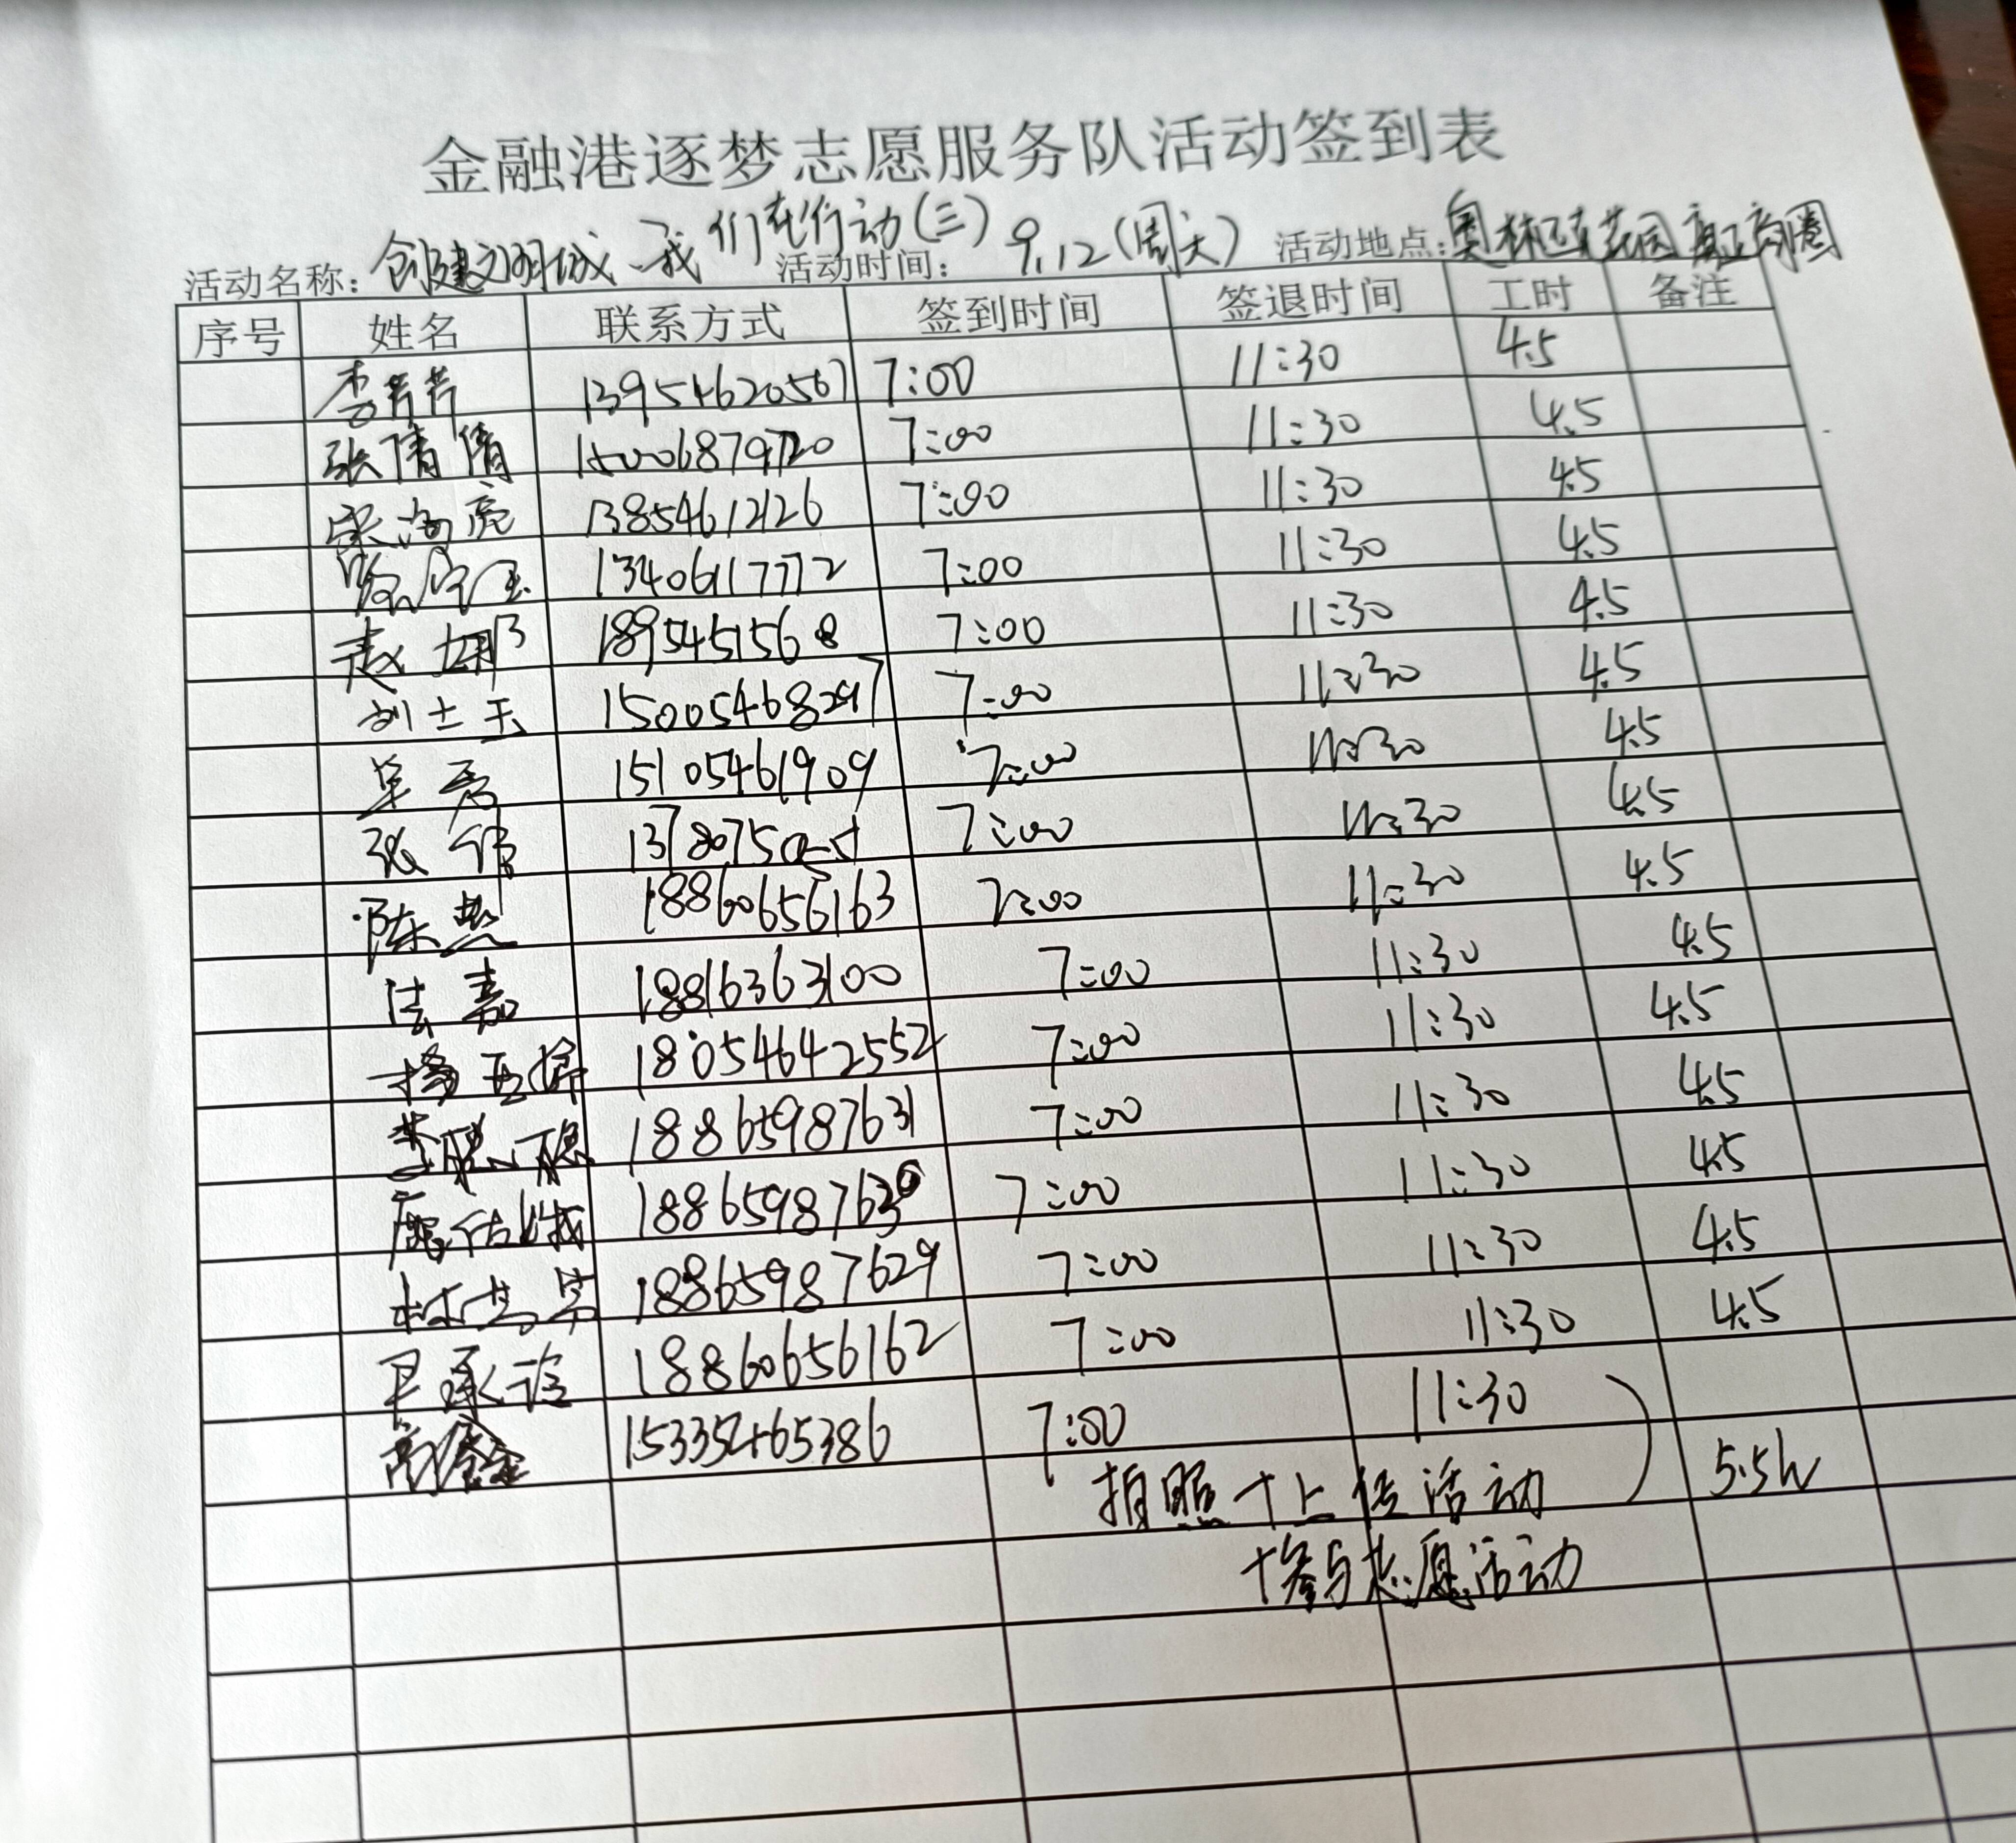 金融港逐梦志愿服务队活动签到表
活动名称: 创建文明城 我们在行动(三) 活动时间: 9.12(周天) 活动地点: 奥林匹克花园 商圈
序号 姓名 联系方式 签到时间 签退时间 工时 备注
李芹芹 13954620567 7:00 11:30 4.5
张倩倩 15006879720 7:00 11:30 4.5
宋海亮 13854612126 7:00 11:30 4.5
13406117772 7:00 11:30 4.5
赵娜 1895451568 7:00 11:30 4.5
刘士玉 15005468297 7:00 11:30 4.5
单秀 15105461909 7:00 11:30 4.5
张伟 7:00 11:30 4.5
陈燕 18860656163 7:00 11:30 4.5
法嘉 18816363100 7:00 11:30 4.5
18054642552 7:00 11:30 4.5
18865987631 7:00 11:30 4.5
18865987630 7:00 11:30 4.5
18865987629 7:00 11:30 4.5
18860656162 7:00 11:30 4.5
15335465386 7:00 11:30
拍照+上传活动 5.5h
+参与志愿活动